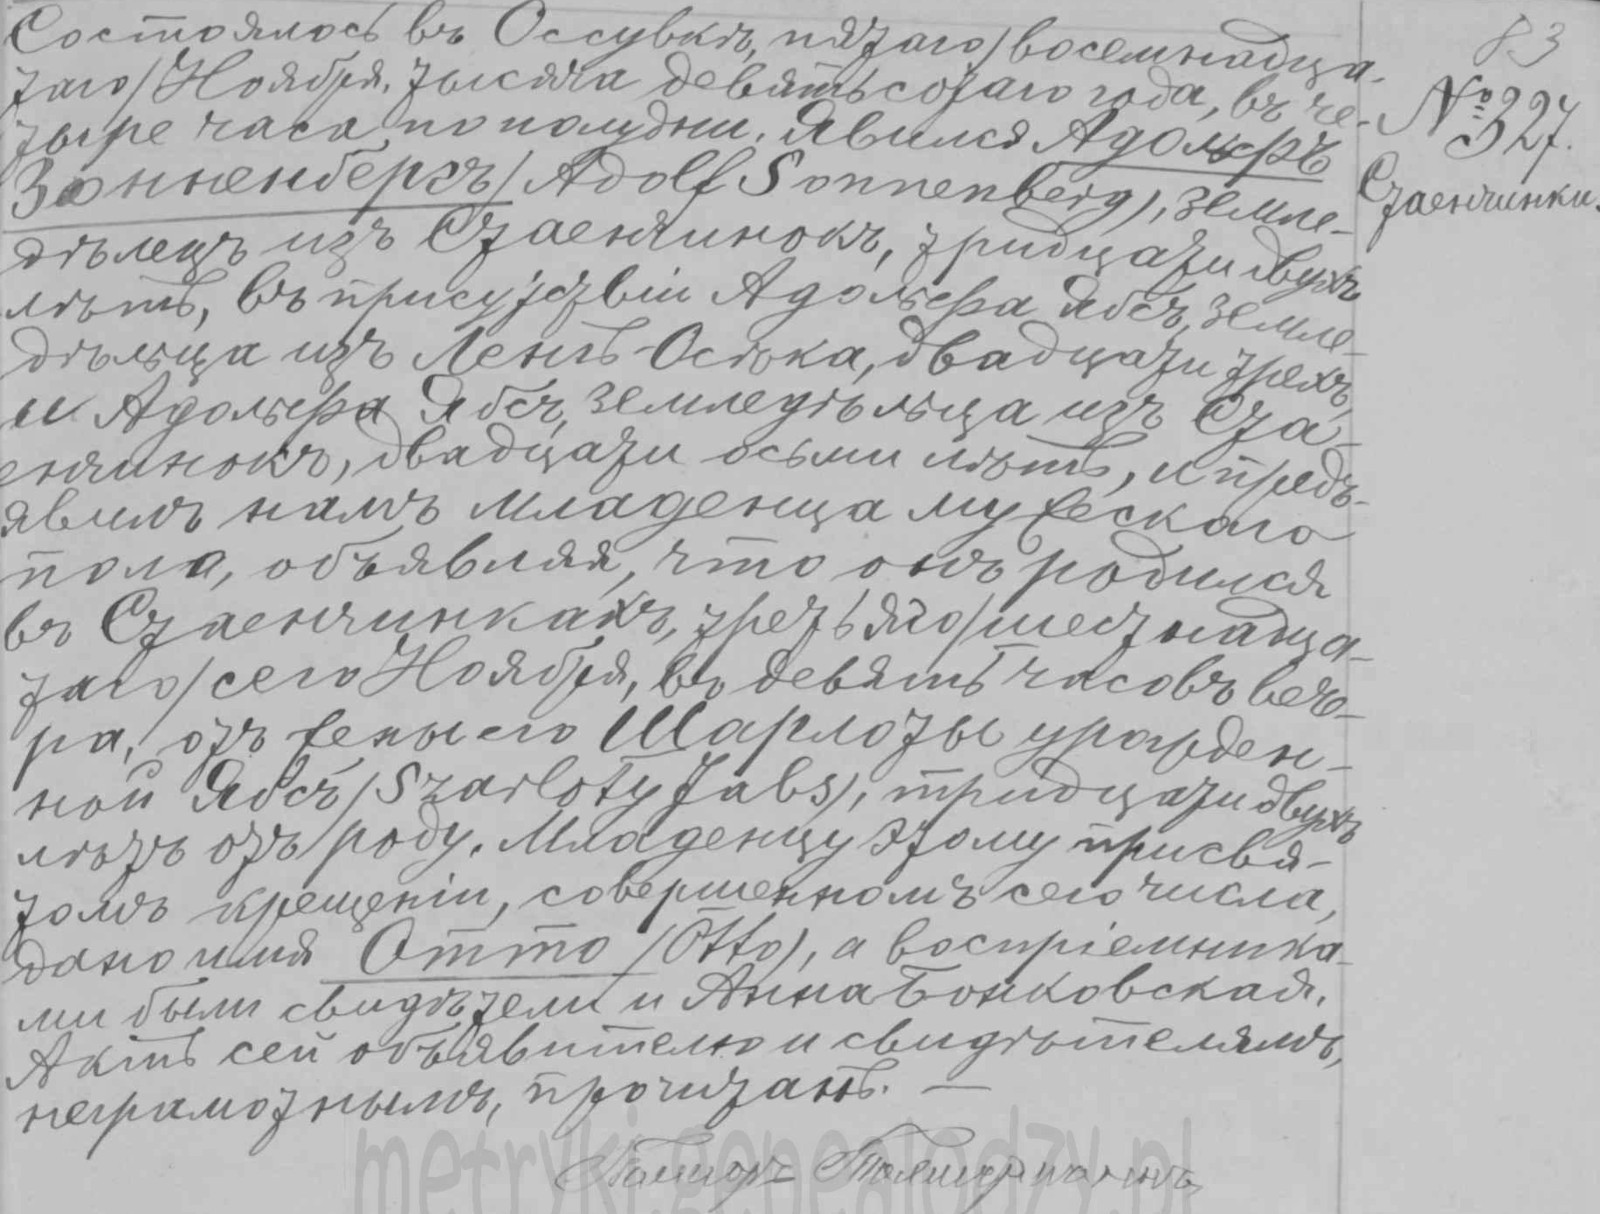 83
№ 327.
Стаенчинки.
Состоялось въ Оссувкѣ, пятаго/восемнадца-
таго/Ноября, тысяча девятьсотаго года, въ че-
тыре часа пополудни. Явился Адольфъ
Зонненбергъ/Adolf Sonnenberg), земле-
дѣлецъ изъ Стаенчинокъ, тридцати двухъ
лѣтъ, въ присутствіи Адольфа Ябсъ, земле-
дѣльца изъ Ленгъ-Осѣка, двадцати трехъ,
и Адольфа Ябсъ, земледѣльца изъ Ста-
енчинокъ, двадцати осьми лѣтъ, и предъ-
явилъ намъ младенца мужескаго
пола, объявляя, что онъ родился
въ Стаенчинкахъ, третьяго/шестнадца-
таго/сего Ноября, въ девять часовъ вече-
ра, отъ жены его Шарлоты урожден-
ной Ябсъ/Szarloty Jabs), тридцати двухъ
лѣтъ отъ роду. Младенцу этому при свя-
томъ крещеніи, совершенномъ сего числа,
дано имя Отто /Otto), а воспріемника-
ми были свидѣтели и Анна Бонковская.
Актъ сей объявителю и свидѣтелямъ,
неграмотнымъ, прочитанъ. —
Пасторъ
metryki.genealodzy.pl